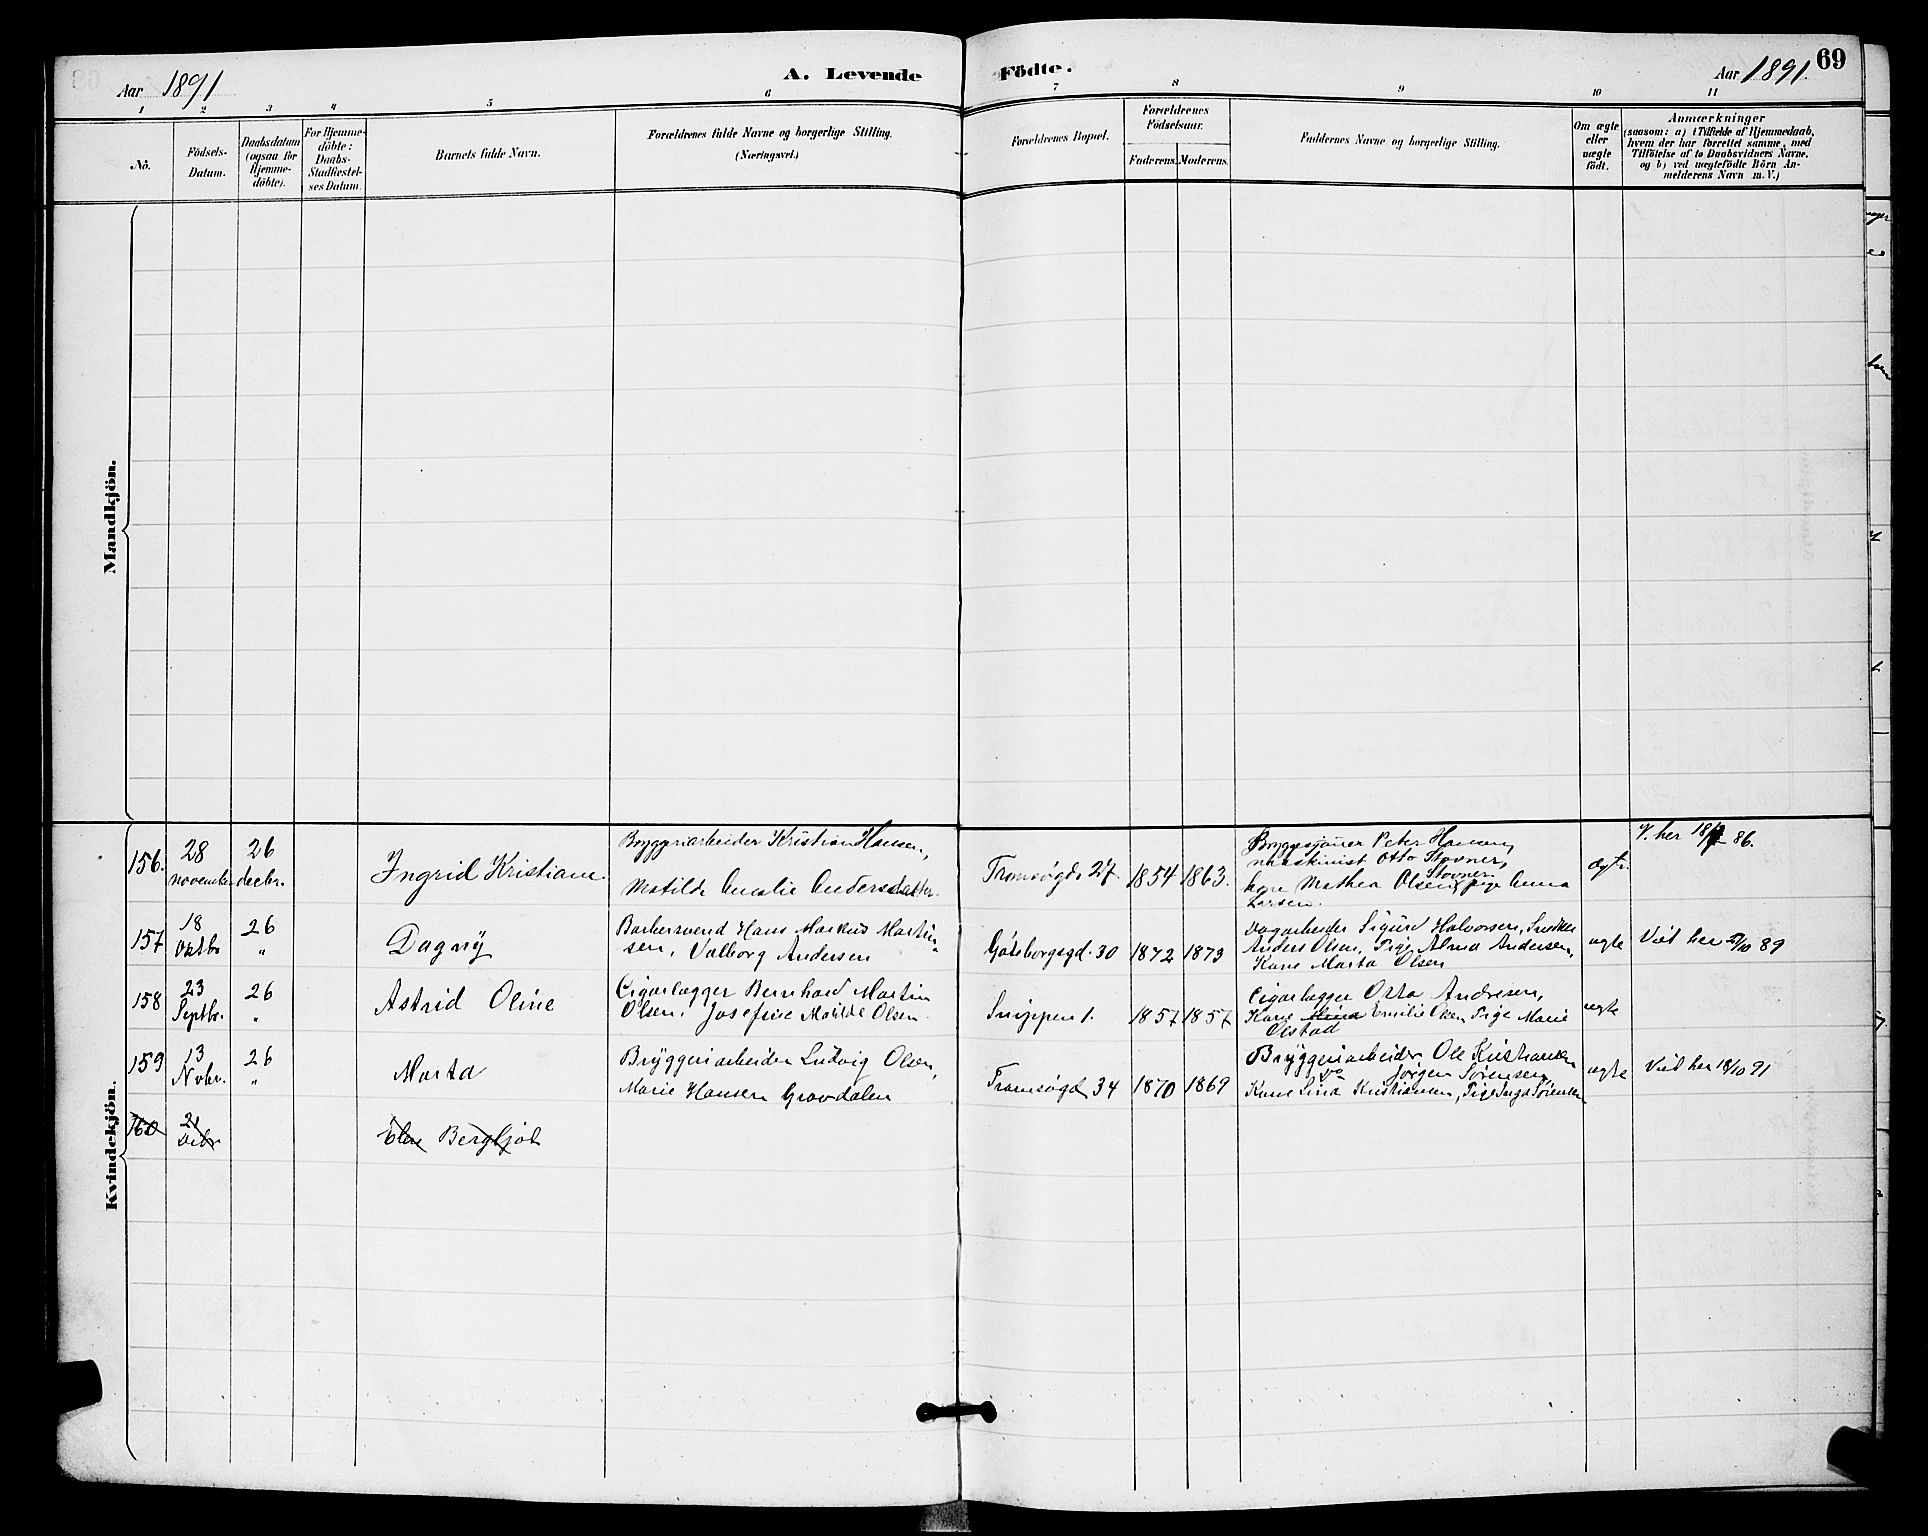 69
Aar 1891
A. Levende Födte.
Aar 1891.
1 2 3 4 5 6 7 8 9 10 11
No.
Födsels-
Datum.
Daabsdatum
(ogsaa for
Hjemme-
döbte).
For Hjemme-
döbte:
Daabs-
Stadfæstel-
ses Datum.
Barnets fulde Navn.
Forældrenes fulde Navne og borgerlige Stilling.
(Næringsvei.)
Forældrenes Bopæl.
Forældrenes
Födselsaar.
Faderens. Moderens.
Faddernes Navne og borgerlige Stilling.
Om ægte
eller
uægte
födt.
Anmærkninger
(saasom: a) i Tilfælde af Hjemmedaab,
hvem der har forrettet samme, med
Tilföielse af to Daabsvidners Navne,
og b) ved uægtefödte Börn An-
melderens Navn m. V.)
Mandkjön.
Kvindekjön.
156.
28
november
26
decbr.
Ingrid Kristiane
Bryggeriarbeider Kristian Hansen,
Matilde Amalie Andersdatter.
Tromsøgd. 27
1854 1863.
Peter Hansen,
maskinist Otto Stovner,
Stovner
kone Mathea Olsen, pige Anna
Larsen.
ægte.
V. her 86.
157
18
Oktbr
26
"
Dagny
Barbersvend Hans Markus Martin-
sen, Valborg Andersen
Gøteborgsgd. 30
1872 1873
Dagarbeider Sigurd Halvorsen, Snedker
Anders Olsen, Pige Alma Andersen,
Kone Marta Olsen
ægte
Viet her 89
158
23
Septbr.
26
"
Astrid Oline
Cigarlægger Bernhard Martin
Olsen, Josefine Matilde Olsen.
Snippen 1.
1857 1857
Cigarlægger Otto Andresen,
Kone Emilie Olsen, Pige Marie
Olstad
ægte
159
13
Nvbr.
26
"
Marta
Bryggeriarbeider Ludvig Olsen,
Marie Hansen Gravdalen
Tromsøgd 34
1870 1869
Bryggeriarbeider Ole Kristiansen
do Jørgen Sørensen
Kone Lina Kristiansen, Pige Inga Sørensen
ægte
Viet her 18/10 91
160
21
Debr
Else Bergljot